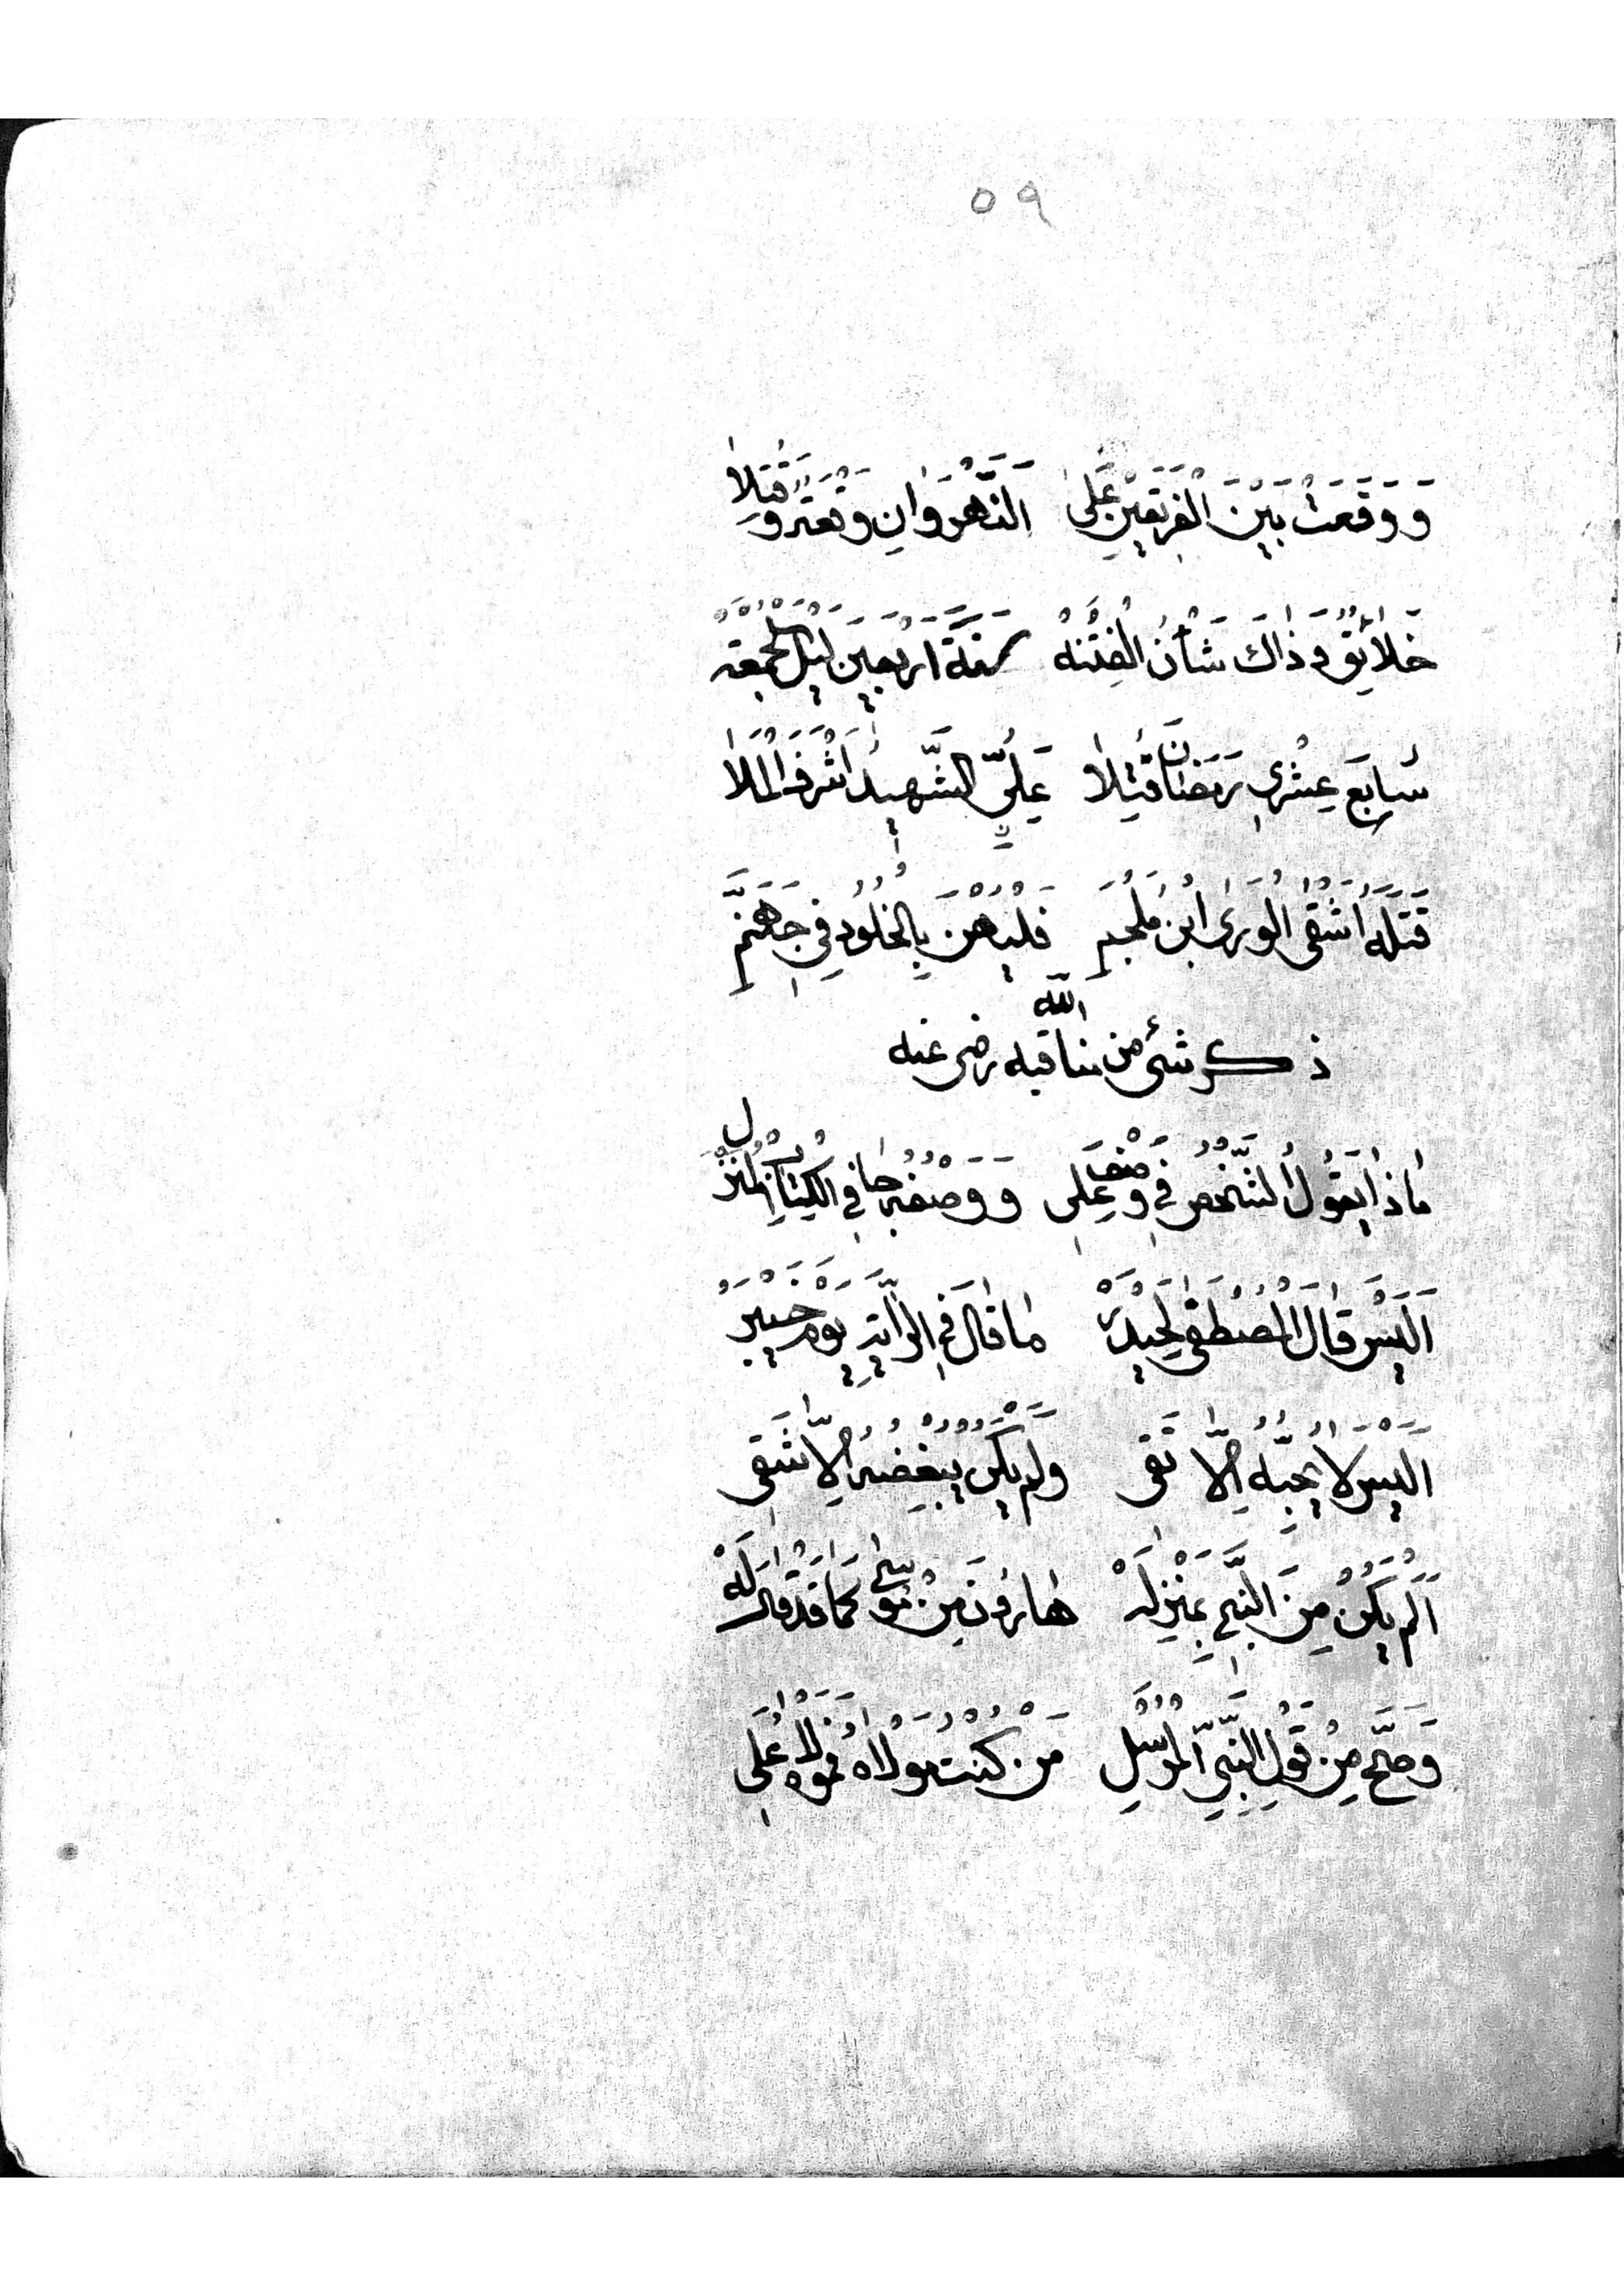 ٥٩
وَوَقَعَتْ بَيْنَ الْفَرِيقَيْنِ عَلَى النَّهْرَوَانِ وَقْعَةٌ وَقُتِلَا
خَلَائِقٌ وَذَاكَ شَأْنُ الْفِتْنَهْ سَنَةَ أَرْبَعِينَ لَيْلَ الْجُمْعَهْ
سَابِعَ عِشْرِي رَمَضَانَ قُتِلَا عَلِيٌّ الشَّهِيدُ أَشْرَفُ الْمَلَا
قَتَلَهُ أَشْقَى الْوَرَى ابْنُ مُلْجَمِ فَلْيَهْنَ بِالْخُلُودِ فِي جَهَنَّمِ
ذكر شئ من مناقبه رضى الله عنه
مَاذَا يَقُولُ الشَّخْصُ فِي وَصْفِ عَلِي وَوَصْفُهُ جَا فِي الْكِتَابِ الْمُنْزَلِ
أَلَيْسَ قَالَ الْمُصْطَفَى لِحَيْدَرَهْ مَا قَالَ فِي الرَّايَةِ يَوْمَ خَيْبَرَ
أَلَيْسَ لَا يُحِبُّهُ إِلَّا تَقِى وَلَمْ يَكُنْ يُبْغِضُهُ إِلَّا شَقِى
أَلَمْ يَكُنْ مِنَ النَّبِي بِمَنْزِلَهْ هَارُونَ مِنْ مُوسَى كَمَا قَدْ قَالَ لَهْ
وَصَحَّ مِنْ قَوْلِ النَّبِيِّ الْمُرْسَلِ مَنْ كُنْتُ مَوْلَاهُ فَمَوْلَاهُ عَلِى